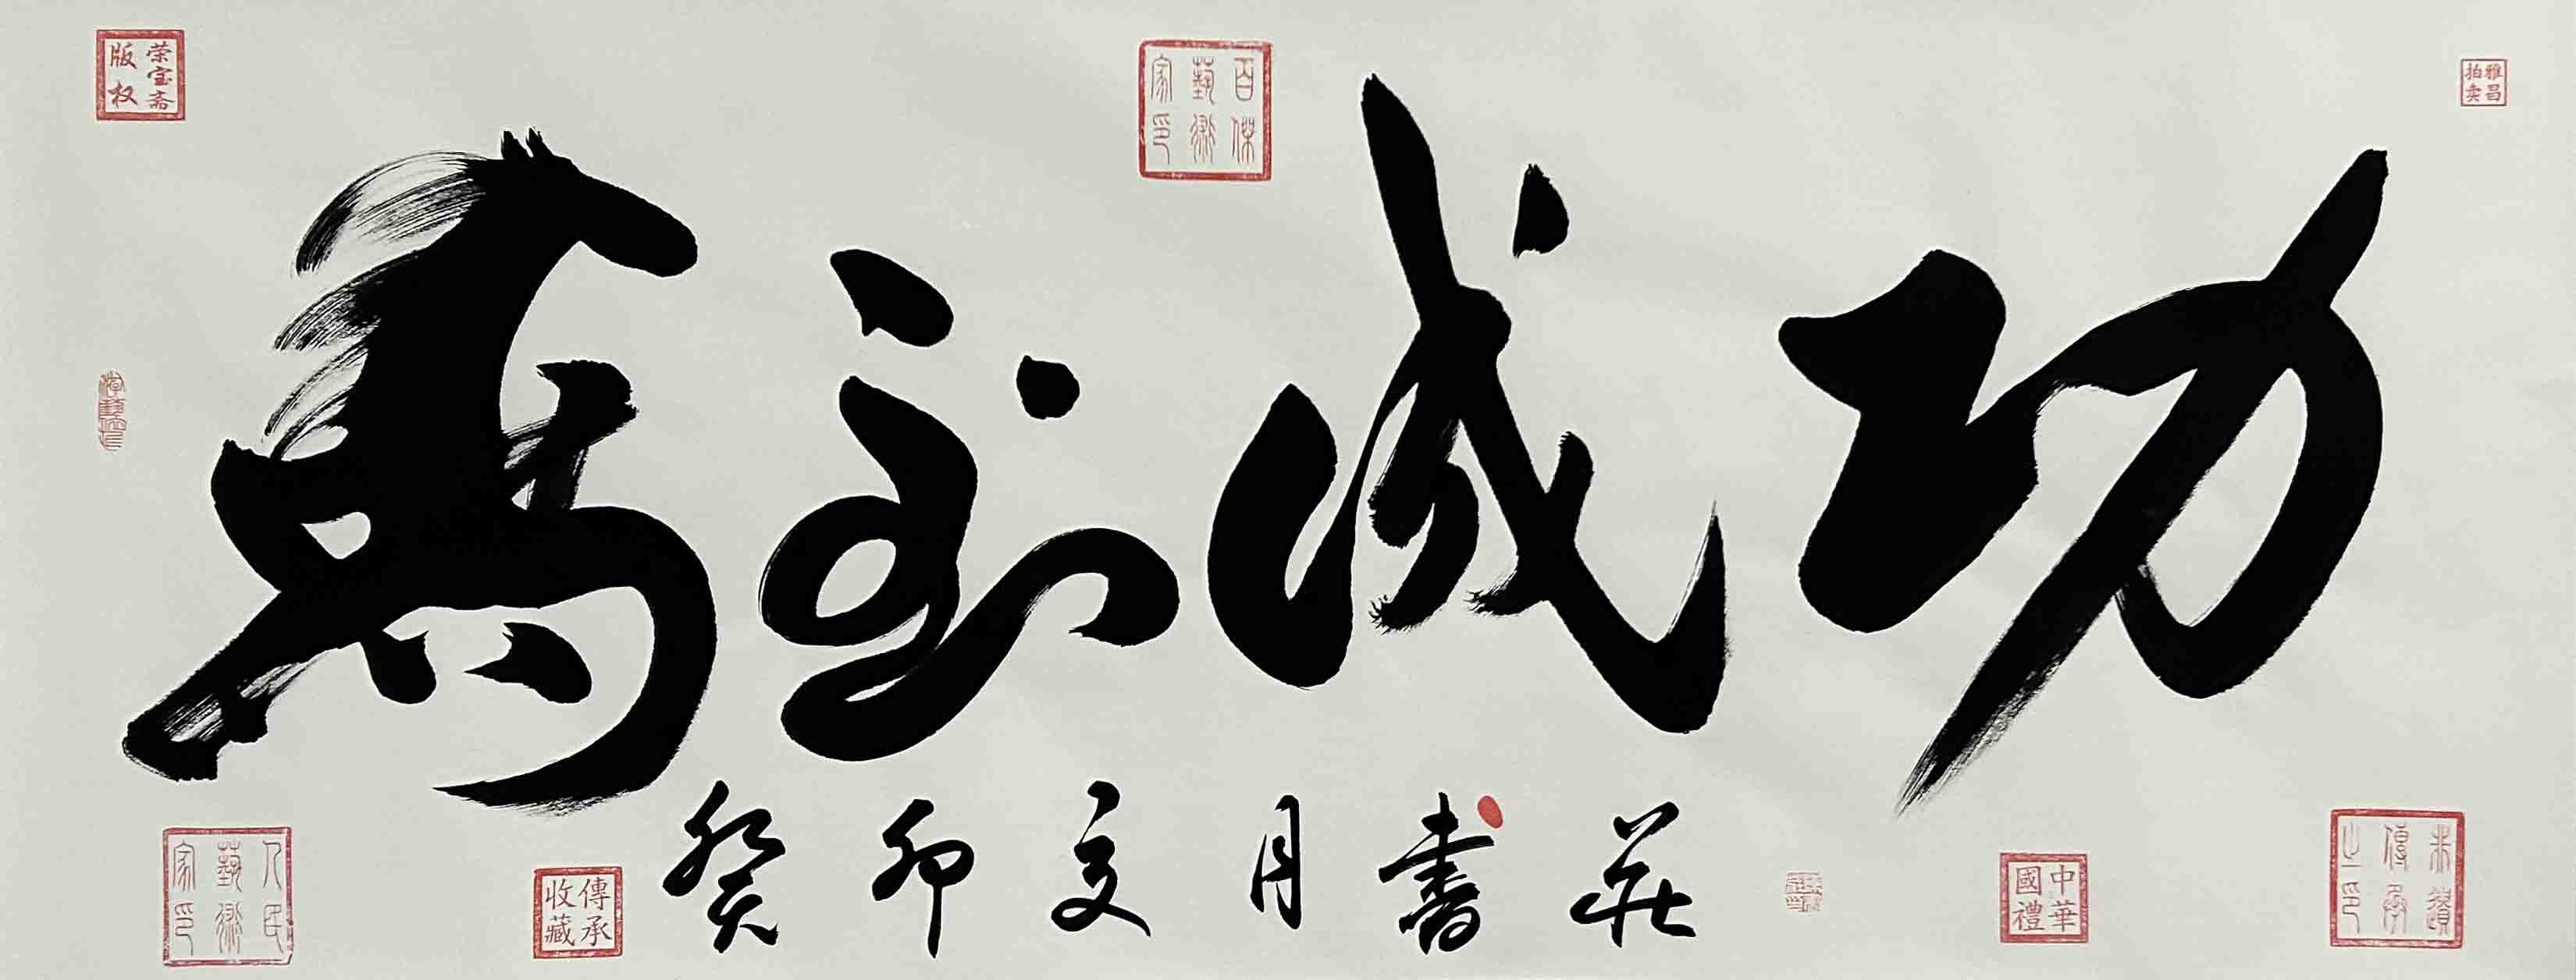 荣宝斋版权
百傑藝術家印
雅昌拍卖
馬到成功
癸卯夏月書莊
人民藝術家印
傳承收藏
中華國禮